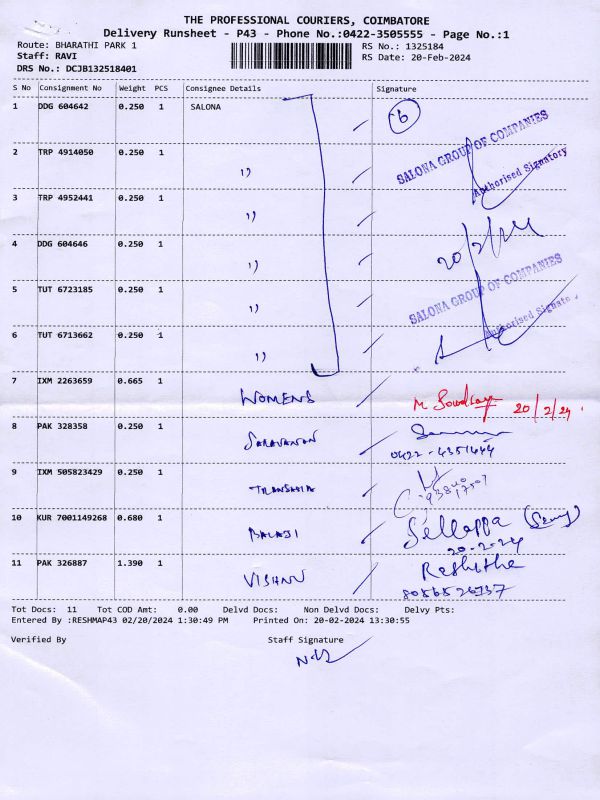 THE PROFESSIONAL COURIERS, COIMBATORE
Delivery Runsheet - P43 - Phone No.:0422-3505555 - Page No.:1
Route: BHARATHI PARK 1 RS No.: 1325184
Staff: RAVI RS Date: 20-Feb-2024
DRS No.: DCJB132518401
S No Consignment No Weight PCS Consignee Details Signature
1 DDG 604642 0.250 1 SALONA 6
SALONA GROUP OF COMPANIES
Authorised Signatory
2 TRP 4914050 0.250 1 ")
3 TRP 4952441 0.250 1 ")
20/2/24
4 DDG 604646 0.250 1 ")
SALONA GROUP OF COMPANIES
5 TUT 6723185 0.250 1 ")
Authorised Signato
6 TUT 6713662 0.250 1 ")
7 IXM 2263659 0.665 1 WOMENS 20/2/24
8 PAK 328358 0.250 1 SARAVANAN
0422-4351444
9 IXM 505823429 0.250 1
10 KUR 7001149268 0.680 1 BALAJI Sellappa
20-2-24
11 PAK 326887 1.390 1 VISHNU Reshithe
8056526737
Tot Docs: 11 Tot COD Amt: 0.00 Delvd Docs: Non Delvd Docs: Delvy Pts:
Entered By :RESHMAP43 02/20/2024 1:30:49 PM Printed On: 20-02-2024 13:30:55
Verified By Staff Signature